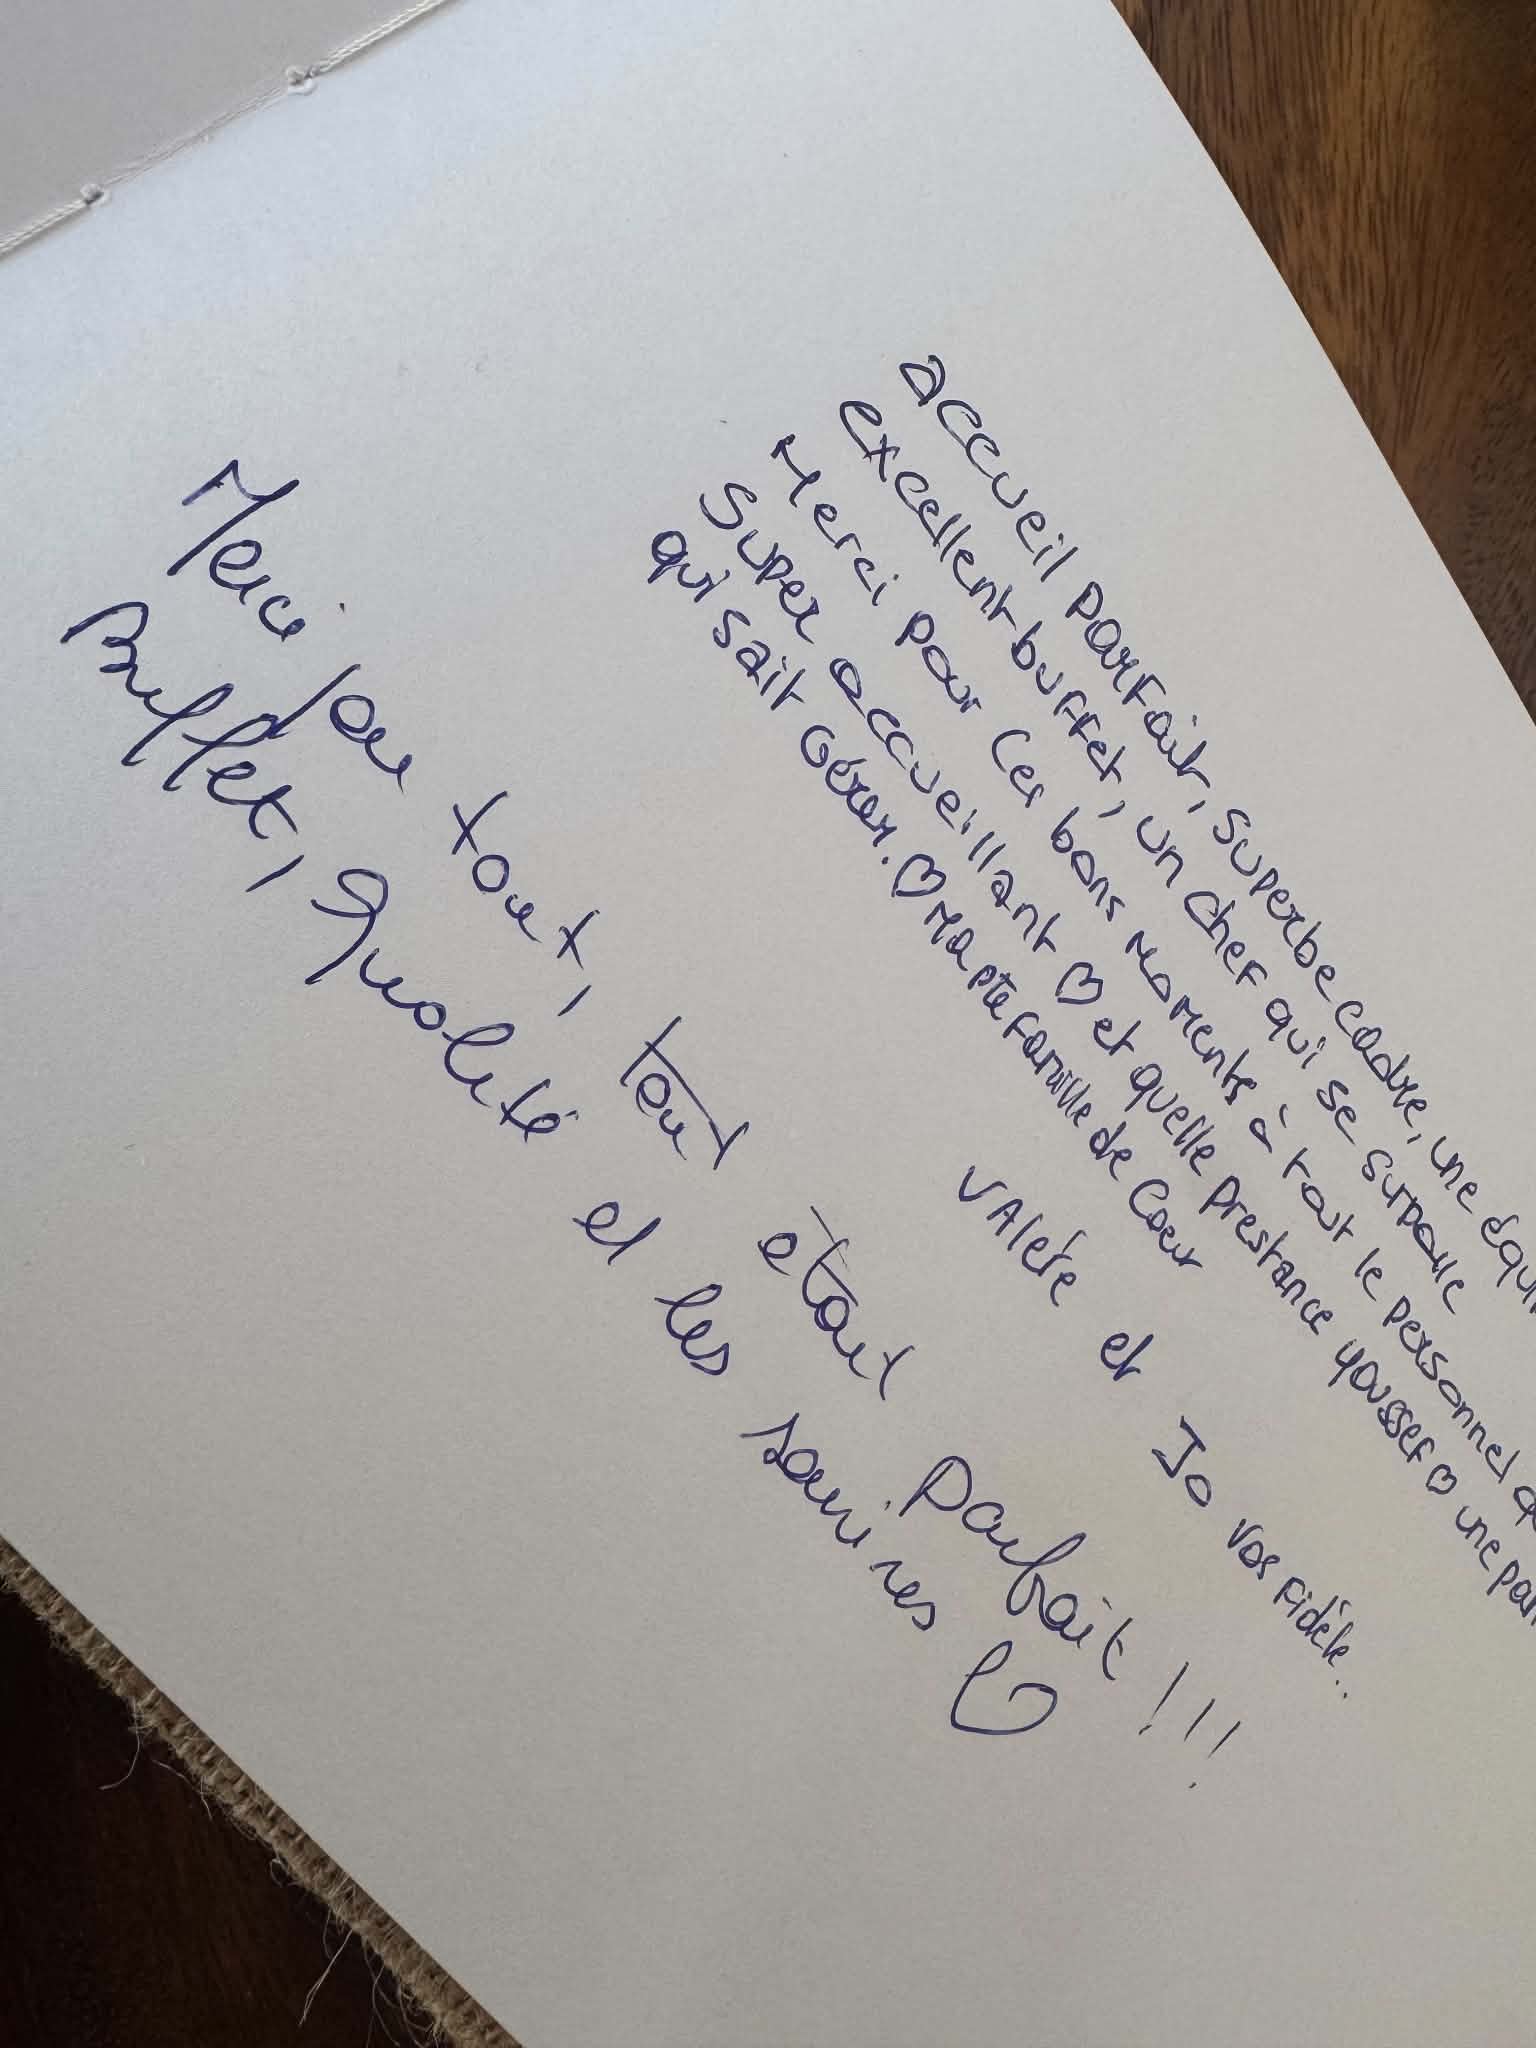 accueil parfait, superbe cadre, une équi
excellent buffet, un chef qui se surpasse
Merci pour ces bons moments à tout le personnel
super accueillant ♡ et quelle prestance Youssef ♡ une
qui sait gérer. ♡ Ma pte famille de Coeur
VAlérie et Jo vos fidèle..
Merci pour tout, tout était parfait !!!
Buffet, qualité et les sourires ♡